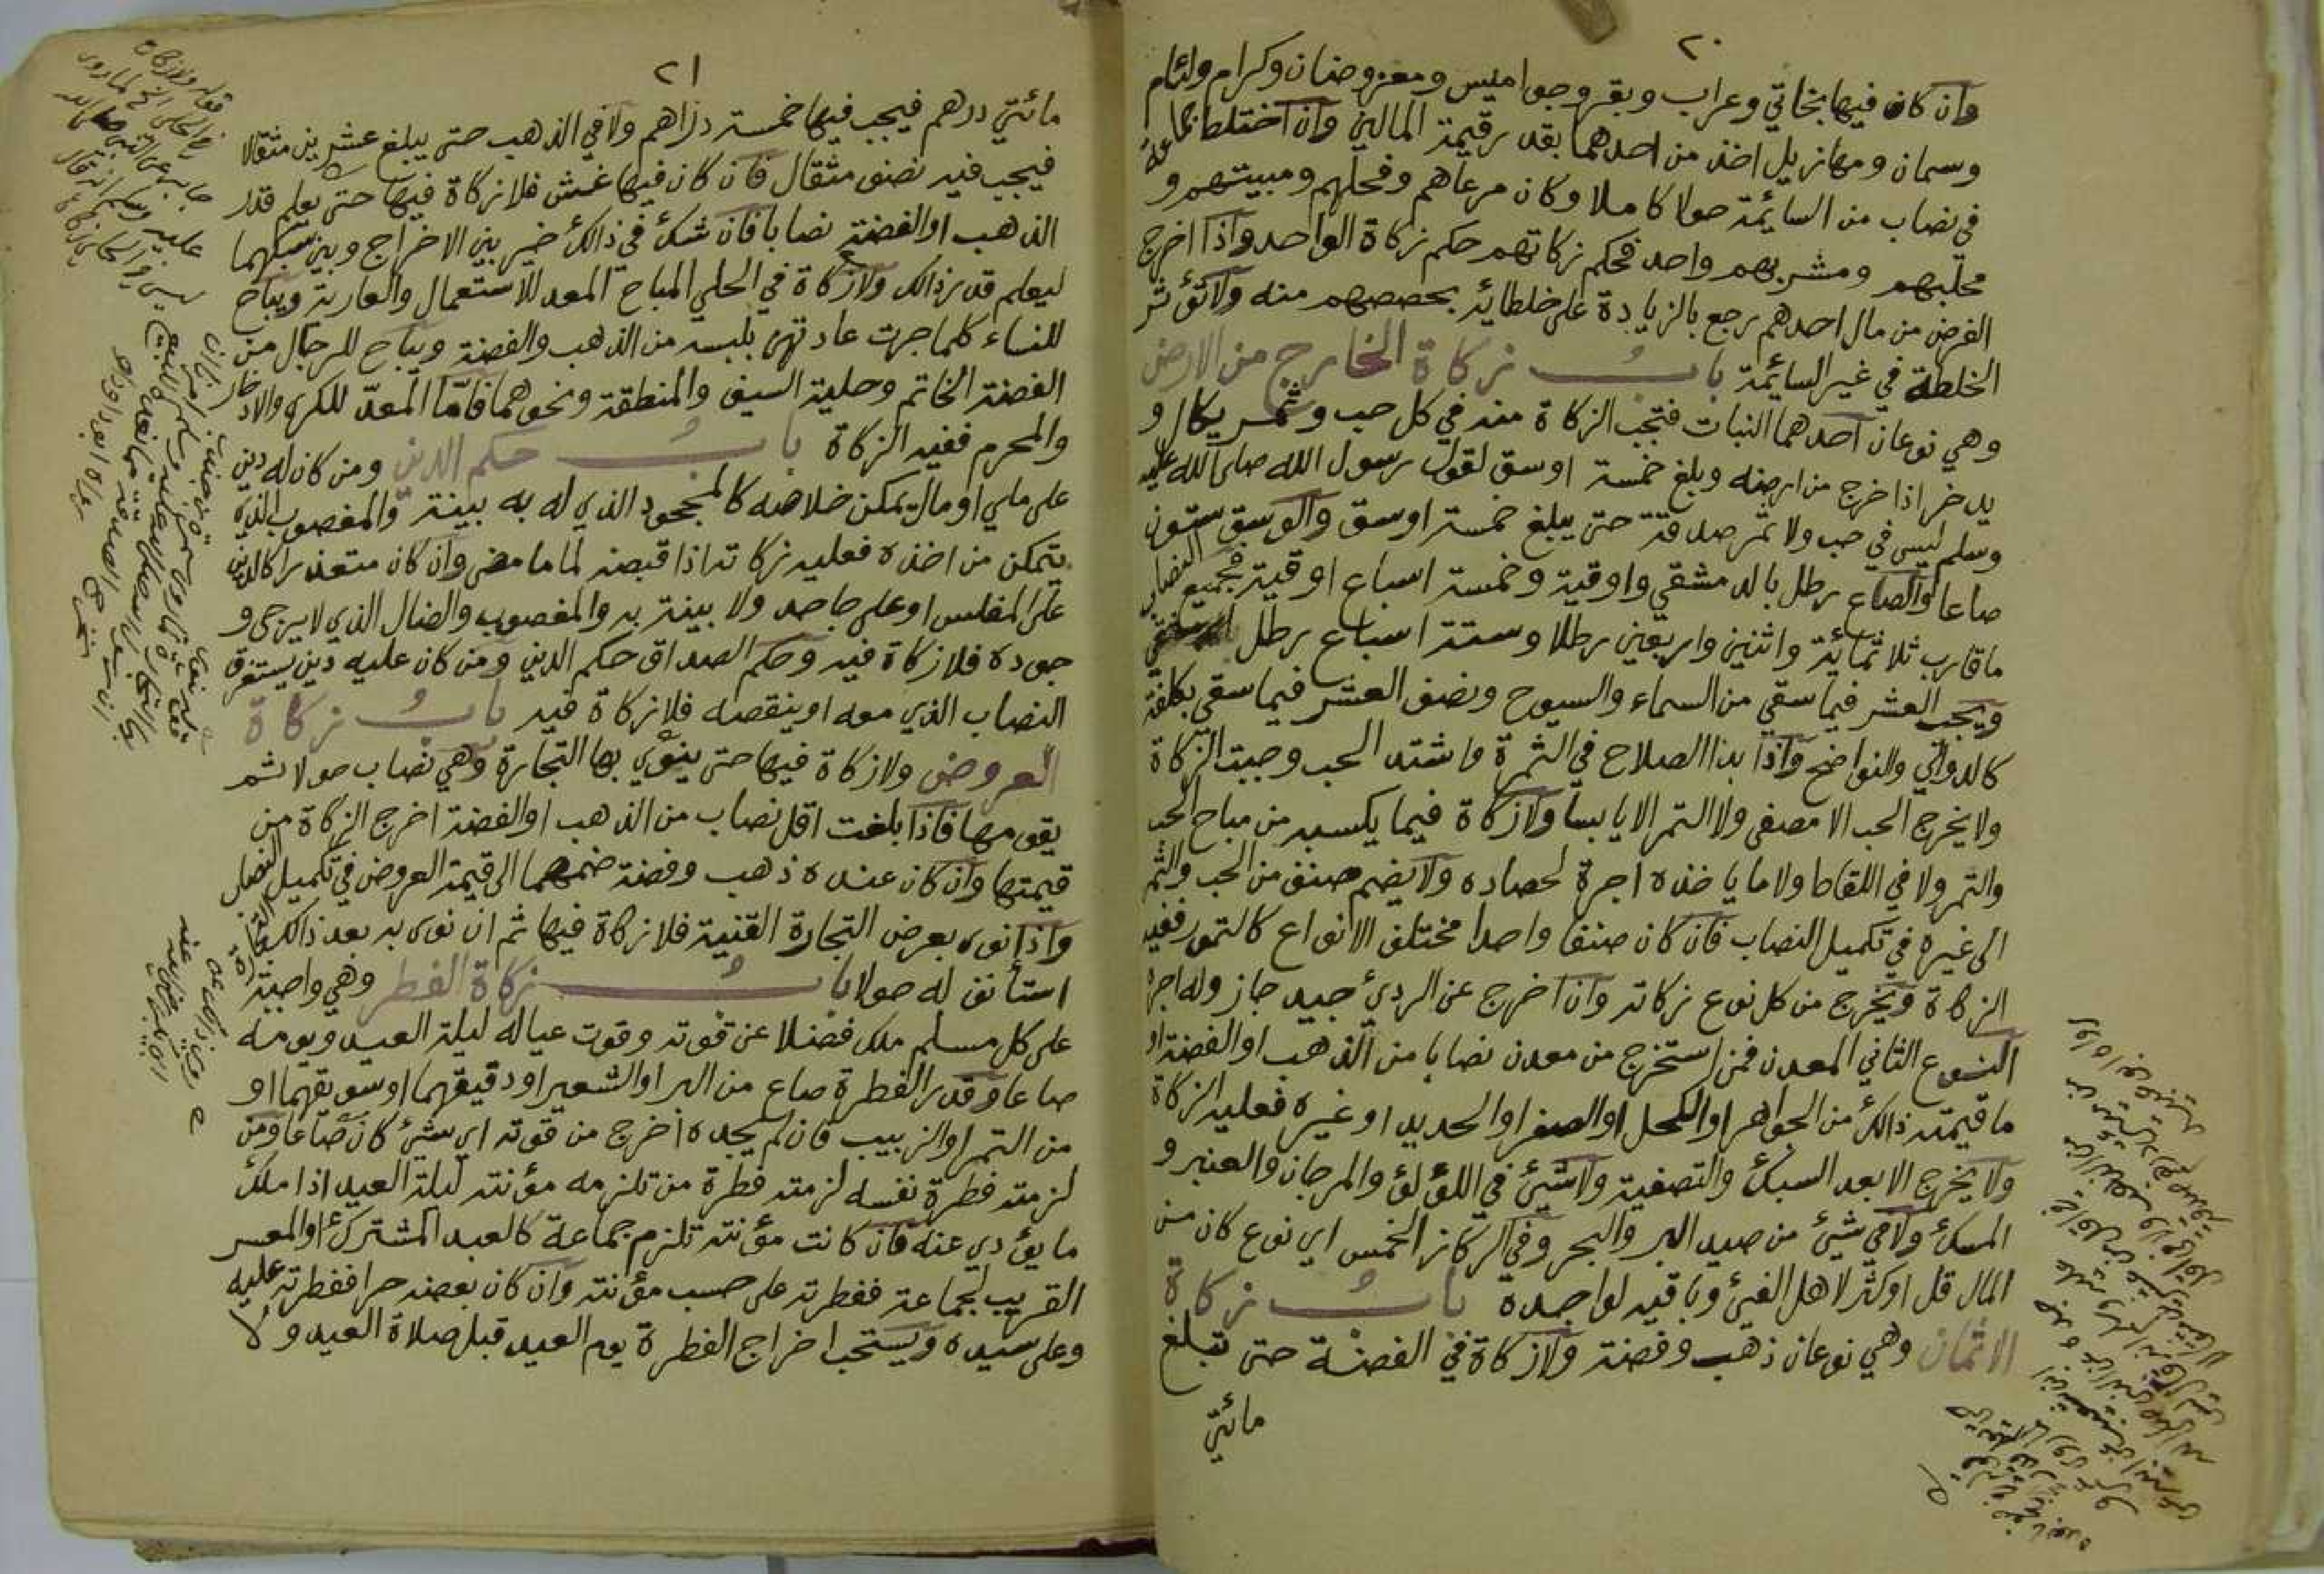 ٢٠
وان كان فيها بخاتي وعراب وبقر وجواميس ومعز وضان وكرام ولئام
وسمان ومهازيل اخذ من احدهما بقدر قيمة المالين وان اختلط جماعة
في نصاب من السائمة حولا كاملا وكان مرعاهم وفحلهم ومبيتهم و
محلبهم ومشربهم واحد فحكم زكاتهم حكم زكاة الواحد واذا اخرج
الفرض من مال احدهم رجع بالزيادة على خلطائه بحصصهم منه ولا تؤثر
الخلطة في غير السائمة باب زكاة الخارج من الارض
وهي نوعان احدهما النبات فتجب الزكاة منه في كل حب وثمر يكال و
يدخر اذا خرج من ارضه وبلغ خمسة اوسق لقول رسول الله صلى الله عليه
وسلم ليس في حب ولا تمر صدقة حتى يبلغ خمسة اوسق والوسق ستون
صاعا والصاع رطل بالدمشقي واوقية وخمسة اسباع اوقية فجميع النصاب
ما قارب ثلاثمائة واثنين واربعين رطلا وستة اسباع رطل
ويجب العشر فيما سقي من السماء والسيوح ونصف العشر فيما سقي بكلفة
كالدوالي والنواضح واذا بدا الصلاح في الثمرة واشتد الحب وجبت الزكاة
ولا يخرج الحب الا مصفى ولا التمر الا يابسا ولا زكاة فيما يكسبه من مباح الحب
والثمر ولا في اللقاط ولا ما ياخذه اجرة لحصاده ولا يضم صنف من الحب والثمر
الى غيره في تكميل النصاب فان كان صنفا واحدا مختلف الانواع كالتمور ففيه
الزكاة ويخرج من كل نوع زكاته وان اخرج عن الردئ جيد جاز وله اجره
النوع الثاني المعدن فمن استخرج من معدن نصابا من الذهب او الفضة او
ما قيمته ذالك من الجواهر او الكحل او الصفر او الحديد او غيره فعليه الزكاة
ولا يخرج الا بعد السبك والتصفية ولا شئ في اللؤلؤ والمرجان والعنبر و
المسك ولا في شئ من صيد البر والبحر وفي الركاز الخمس اي نوع كان من
المال قل او كثر لاهل الفئ وباقيه لواجده باب زكاة
الاثمان وهي نوعان ذهب وفضة ولا زكاة في الفضة حتى تبلغ
مائتي
٢١
مائتي درهم فيجب فيها خمسة دراهم ولا في الذهب حتى يبلغ عشرين مثقالا
فيجب فيه نصف مثقال فان كان فيها غش فلا زكاة فيها حتى يعلم قدر
الذهب او الفضة نصابا فان شك في ذالك خير بين الاخراج وبين سبكهما
ليعلم قدر ذالك ولا زكاة في الحلي المباح المعد للاستعمال والعارية ويباح
للنساء كلما جرت عادتهن بلبسه من الذهب والفضة ويباح للرجال من
الفضة الخاتم وحلية السيف والمنطقة ونحوهما فامّا المعدّ للكرى والادخار
والمحرم ففيه الزكاة باب حكم الدين ومن كان له دين
على ملي او مال يمكن خلاصه كالمجحود الذي له به بينة والمغصوب الذي
يتمكن من اخذه فعليه زكاته اذا قبضه لما مضى وان كان متعذرا كالدين
على المفلس او على جاحد ولا بينة به والمغصوب والضال الذي لا يرجى و
جوده فلا زكاة فيه وحكم الصداق حكم الدين ومن كان عليه دين يستغرق
النصاب الذي معه او ينقصه فلا زكاة فيه باب زكاة
العروض ولا زكاة فيها حتى ينوي بها التجارة وهي نصاب حولا ثم
يقومها فاذا بلغت اقل نصاب من الذهب او الفضة اخرج الزكاة من
قيمتها وان كان عنده ذهب وفضة ضمهما الى قيمة العروض في تكميل النصاب
واذا نوى بعرض التجارة القنية فلا زكاة فيها ثم ان نوى به بعد ذالك التجارة
استأنف له حولا باب زكاة الفطر وهي واجبة
على كل مسلم ملك فضلا عن قوته وقوت عياله ليلة العيد ويومه
صاعا وقدر الفطرة صاع من البر او الشعير او دقيقهما او سويقهما او
من التمر او الزبيب فان لم يجده اخرج من قوته اي شئ كان صاعا ومن
لزمته فطرة نفسه لزمته فطرة من تلزمه مؤنته ليلة العيد اذا ملك
ما يؤدي عنه فان كانت مؤنته تلزم جماعة كالعبد المشترك او المعسر
القريب لجماعة ففطرته على حسب مؤنته وان كان بعضه حرا ففطرته عليه
وعلى سيده ويستحب اخراج الفطرة يوم العيد قبل صلاة العيد ولا
قوله ولا زكاة
في الحلي الخ لما روى
جابر عن النبي صلى الله
عليه وسلم انه قال
ليس في الحلي زكاة